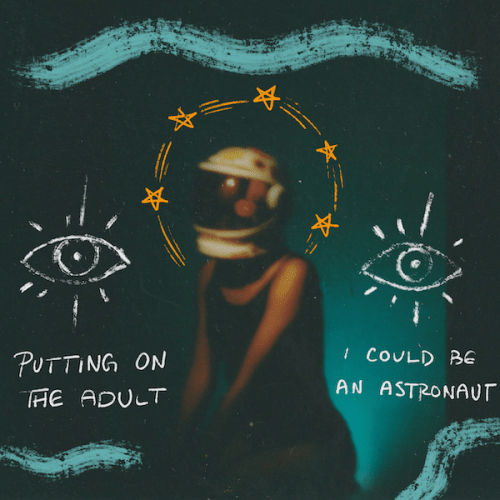 PUTTING ON
THE ADULT
I COULD BE
AN ASTRONAUT